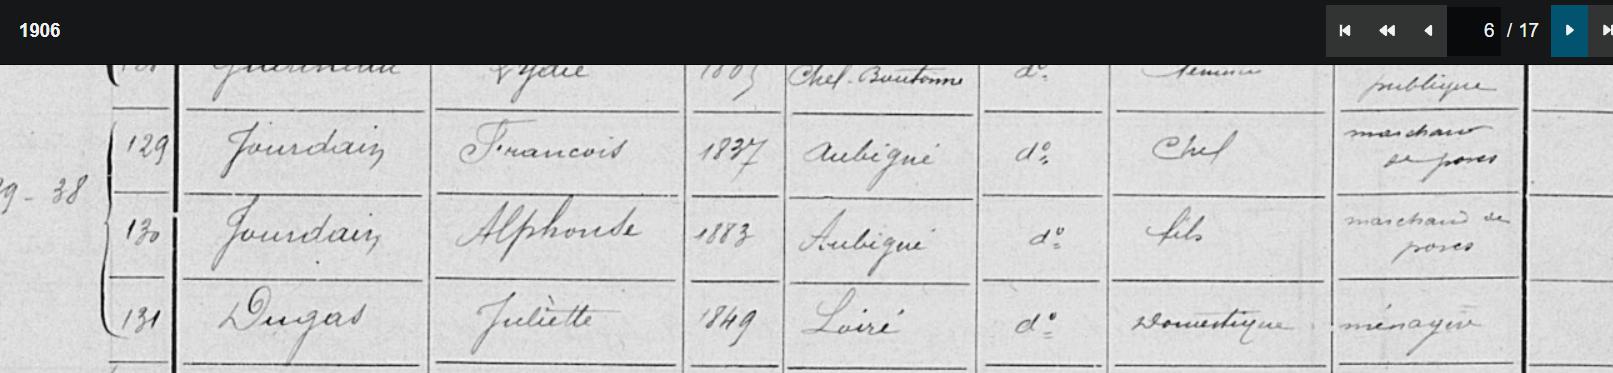 1906
6 / 17
Lydie Chef-Boutonne d° femme publique
129 Jourdain Francois 1837 Aubigné d° Chef marchand de porcs
39 - 38
130 Jourdain Alphonse 1883 Aubigné d° fils marchand de porcs
131 Dugas Juliètte 1849 Loiré d° Domestique ménagère